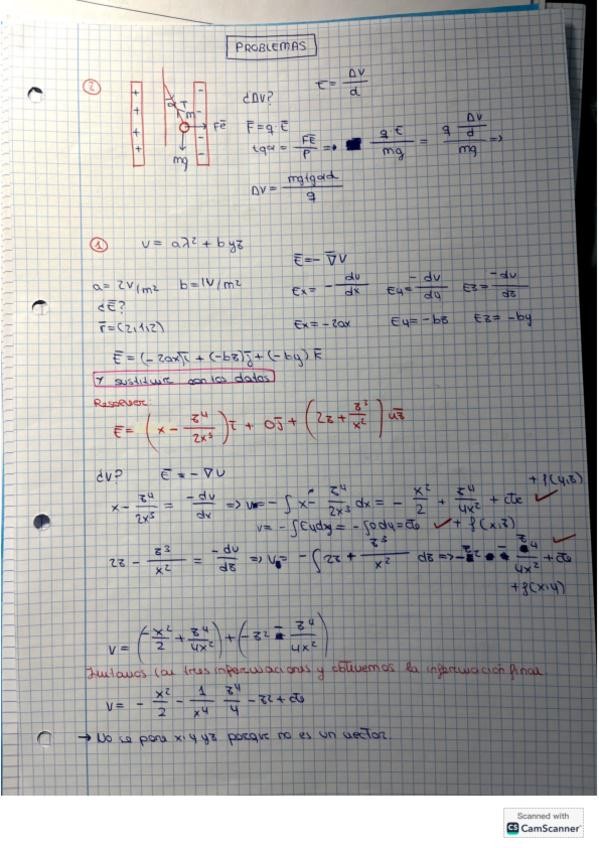 PROBLEMAS
②
+ + + +
- - - -
α T
m
FE
mg
¿ΔV?
E = ΔV/d
F̄ = q·Ē
tgα = FE/P => qE/mg = q ΔV/d / mg =>
ΔV = mg tgα d / q
① V = ax² + byz
Ē = -∇̄V
a = 2V/m² b = 1V/m²
Ex = -dV/dx Ey = -dV/dy Ez = -dV/dz
¿Ē?
r̄ = (2,1,2)
Ex = -2ax Ey = -bz Ez = -by
Ē = (-2ax)i̅ + (-bz)j̅ + (-by)k̅
Y sustituir con los datos
Resolver:
Ē = (x - z⁴/2x³) i̅ + 0j̅ + (2z + z³/x²) u̅z
¿V? Ē = -∇V
x - z⁴/2x³ = -dV/dx => V = -∫ x - z⁴/2x³ dx = - x²/2 + z⁴/4x² + cte ✓ + f(y,z)
V = -∫Eydy = -∫0dy = cte ✓ + f(x,z)
2z - z³/x² = -dV/dz => V = -∫2z + z³/x² dz => -z² - z⁴/4x² + cte ✓
+ f(x,y)
V = (-x²/2 + z⁴/4x²) + (-z² - z⁴/4x²)
Juntamos las tres informaciones y obtenemos la información final
V = - x²/2 - 1/x⁴ z⁴/4 - z² + cte
→ No se pone x, y y z porque no es un vector.
Scanned with
CS CamScanner